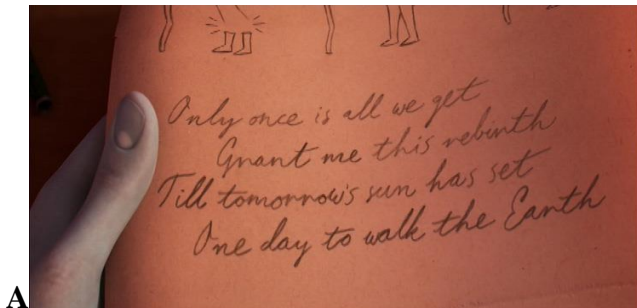 Only once is all we get
Grant me this rebirth
Till tomorrow's sun has set
One day to walk the Earth
A